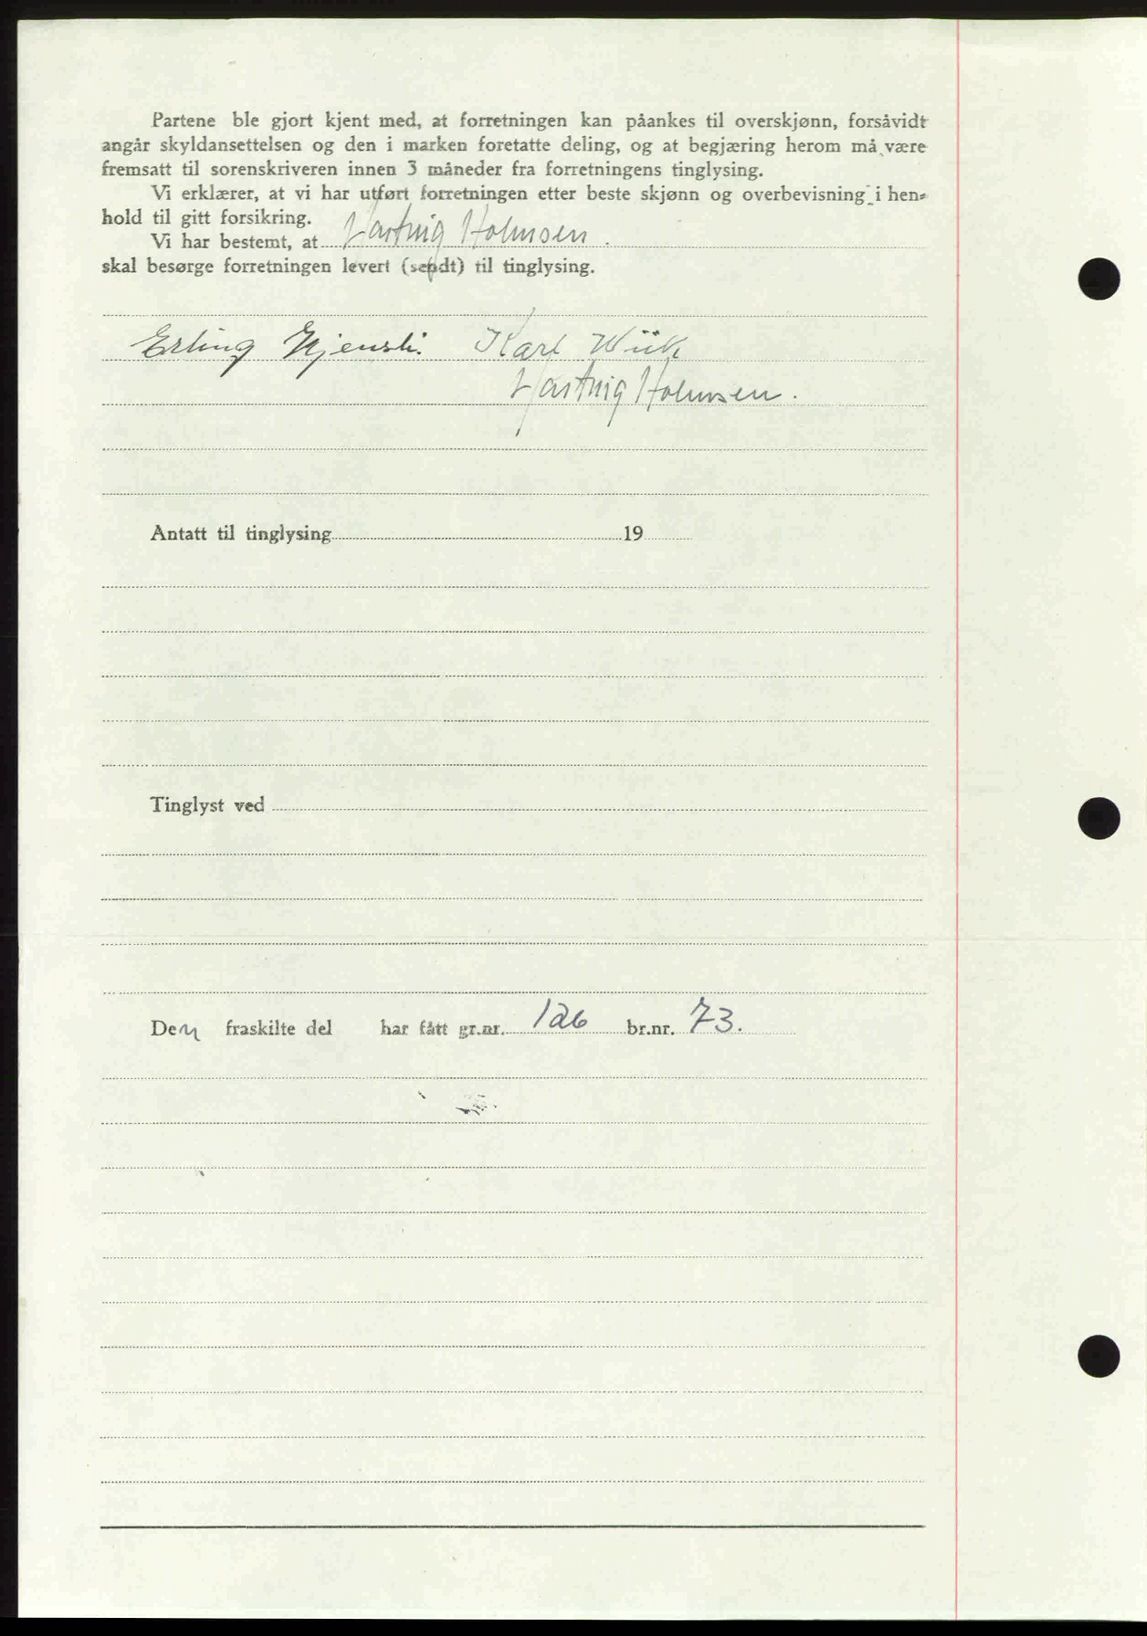 Partene ble gjort kjent med, at forretningen kan påankes til overskjønn, forsåvidt
angår skyldansettelsen og den i marken foretatte deling, og at begjæring herom må være
fremsatt til sorenskriveren innen 3 måneder fra forretningens tinglysing.
Vi erklærer, at vi har utført forretningen etter beste skjønn og overbevisning i hen-
hold til gitt forsikring.
Vi har bestemt, at Hartvig Holmsen.
skal besørge forretningen levert (sendt) til tinglysing.
Erling Karl Wiik
Hartvig Holmsen.
Antatt til tinglysing 19
Tinglyst ved
Den fraskilte del har fått gr.nr. 126 br.nr. 73.